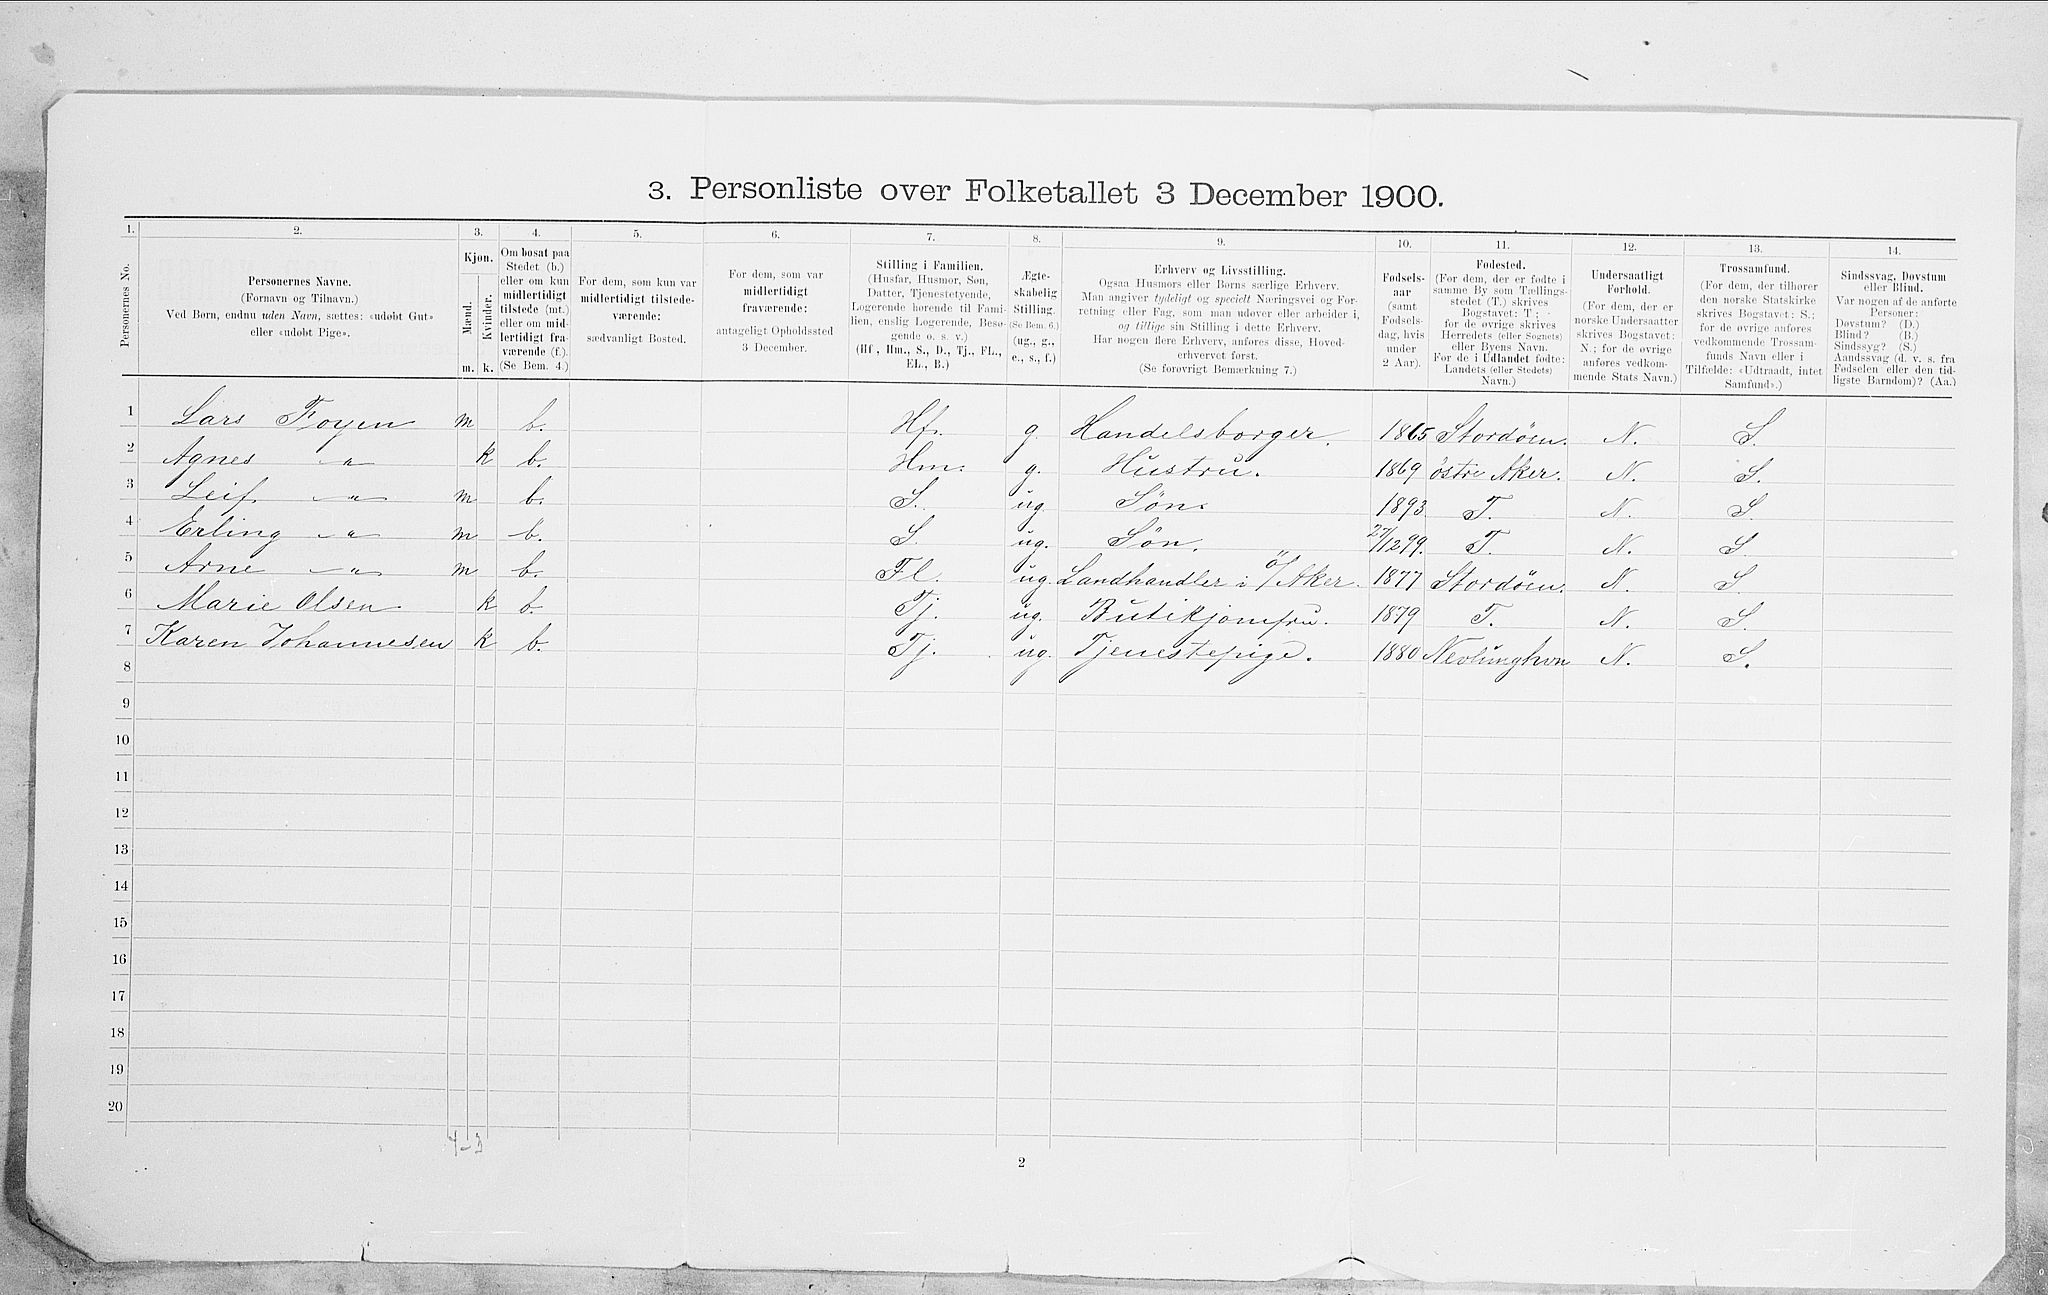 3. Personliste over Folketallet 3 December 1900.
1. 2. 3. 4. 5. 6. 7. 8. 9. 10. 11. 12. 13. 14.
Personernes No.
Personernes Navne.
(Fornavn og Tilnavn.)
Ved Børn, endnu uden Navn, sættes: «udøbt Gut»
eller «udøbt Pige».
Kjøn.
Mænd.
Kvinder.
m. k.
Om bosat paa
Stedet (b.)
eller om kun
midlertidigt
tilstede (mt.)
eller om mid-
lertidigt fra-
værende (f.).
(Se Bem. 4.)
For dem, som kun var
midlertidigt tilstede-
værende:
sædvanligt Bosted.
For dem, som var
midlertidigt
fraværende:
antageligt Opholdssted
3 December.
Stilling i Familien.
(Husfar, Husmor, Søn,
Datter, Tjenestetyende,
Logerende hørende til Fami-
lien, enslig Logerende, Besø-
gende o. s. v.)
(Hf., Hm., S., D., Tj., FL.,
EL., B.)
Ægte-
skabelig
Stilling.
(Se Bem. 6.)
(ug., g.,
e., s., f.)
Erhverv og Livsstilling.
Ogsaa Husmors eller Børns særlige Erhverv.
Man angiver tydeligt og specielt Næringsvei og For-
retning eller Fag, som man udøver eller arbeider i,
og tillige sin Stilling i dette Erhverv.
Har nogen flere Erhverv, anføres disse, Hoved-
erhvervet først.
(Se forøvrigt Bemærkning 7.)
Fødsels-
aar
(samt
Fødsels-
dag, hvis
under
2 Aar).
Fødested.
(For dem, der er fødte i
samme By som Tællings-
stedet (T.) skrives
Bogstavet: T;
for de øvrige skrives
Herredets (eller Sognets)
eller Byens Navn.
For de i Udlandet fødte:
Landets (eller Stedets)
Navn.)
Undersaatligt
Forhold.
(For dem, der er
norske Undersaatter
skrives Bogstavet:
N.; for de øvrige
anføres vedkom-
mende Stats Navn.)
Trossamfund.
(For dem, der tilhører
den norske Statskirke
skrives Bogstavet: S.;
for de øvrige anføres
vedkommende Trossam-
funds Navn eller i
Tilfælde: «Udtraadt, intet
Samfund».)
Sindssvag, Døvstum
eller Blind.
Var nogen af de anførte
Personer:
Døvstum? (D.)
Blind? (B.)
Sindssyg? (S.)
Aandssvag (d. v. s. fra
Fødselen eller den tid-
ligste Barndom)? (Aa.)
1 Lars Foyen m b. Hf. g. Handelsborger. 1865 Stordøen. N. S.
2 Agnes -"- k b. Hm. g. Hustru. 1869 østre Aker. N. S.
3 Leif -"- m b. S. ug. Søn. 1893 T. N. S
4 Erling -"- m b. S. ug. Søn. 27/12 99. T. N. S
5 Arne -"- m b. Fl. ug. Landhandler i Ö/Aker. 1877 Stordøen. N. S.
6 Marie Olsen k b. Tj. ug. Butikjomfru. 1879 T. N. S.
7 Karen Johannesen k b. Tj. ug. Tjenestepige. 1880 Nevlunghvn N. S.
8
9
10
11
12
13
14
15
16
17
18
19
20
2